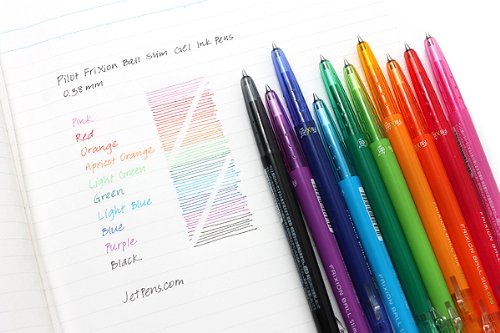 Pilot FriXion Ball Slim Gel Ink Pens
0.38mm
Pink
Red
Orange
Apricot Orange
Light Green
Green
Light Blue
Blue
Purple
Black
JetPens.com
FRIXION BALL Slim
FRIXION BALL Slim
FRIXION BALL Slim